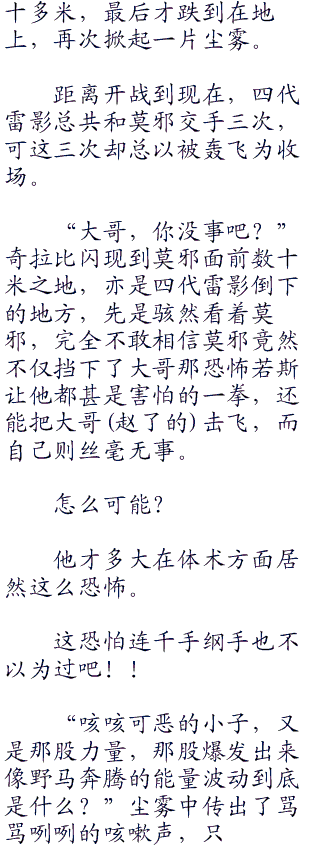 十多米，最后才跌到在地
上，再次掀起一片尘雾。
距离开战到现在，四代
雷影总共和莫邪交手三次，
可这三次却总以被轰飞为收
场。
“大哥，你没事吧？”
奇拉比闪现到莫邪面前数十
米之地，亦是四代雷影倒下
的地方，先是骇然看着莫
邪，完全不敢相信莫邪竟然
不仅挡下了大哥那恐怖若斯
让他都甚是害怕的一拳，还
能把大哥(赵了的)击飞，而
自己则丝毫无事。
怎么可能？
他才多大在体术方面居
然这么恐怖。
这恐怕连千手纲手也不
以为过吧！！
“咳咳可恶的小子，又
是那股力量，那股爆发出来
像野马奔腾的能量波动到底
是什么？”尘雾中传出了骂
骂咧咧的咳嗽声，只